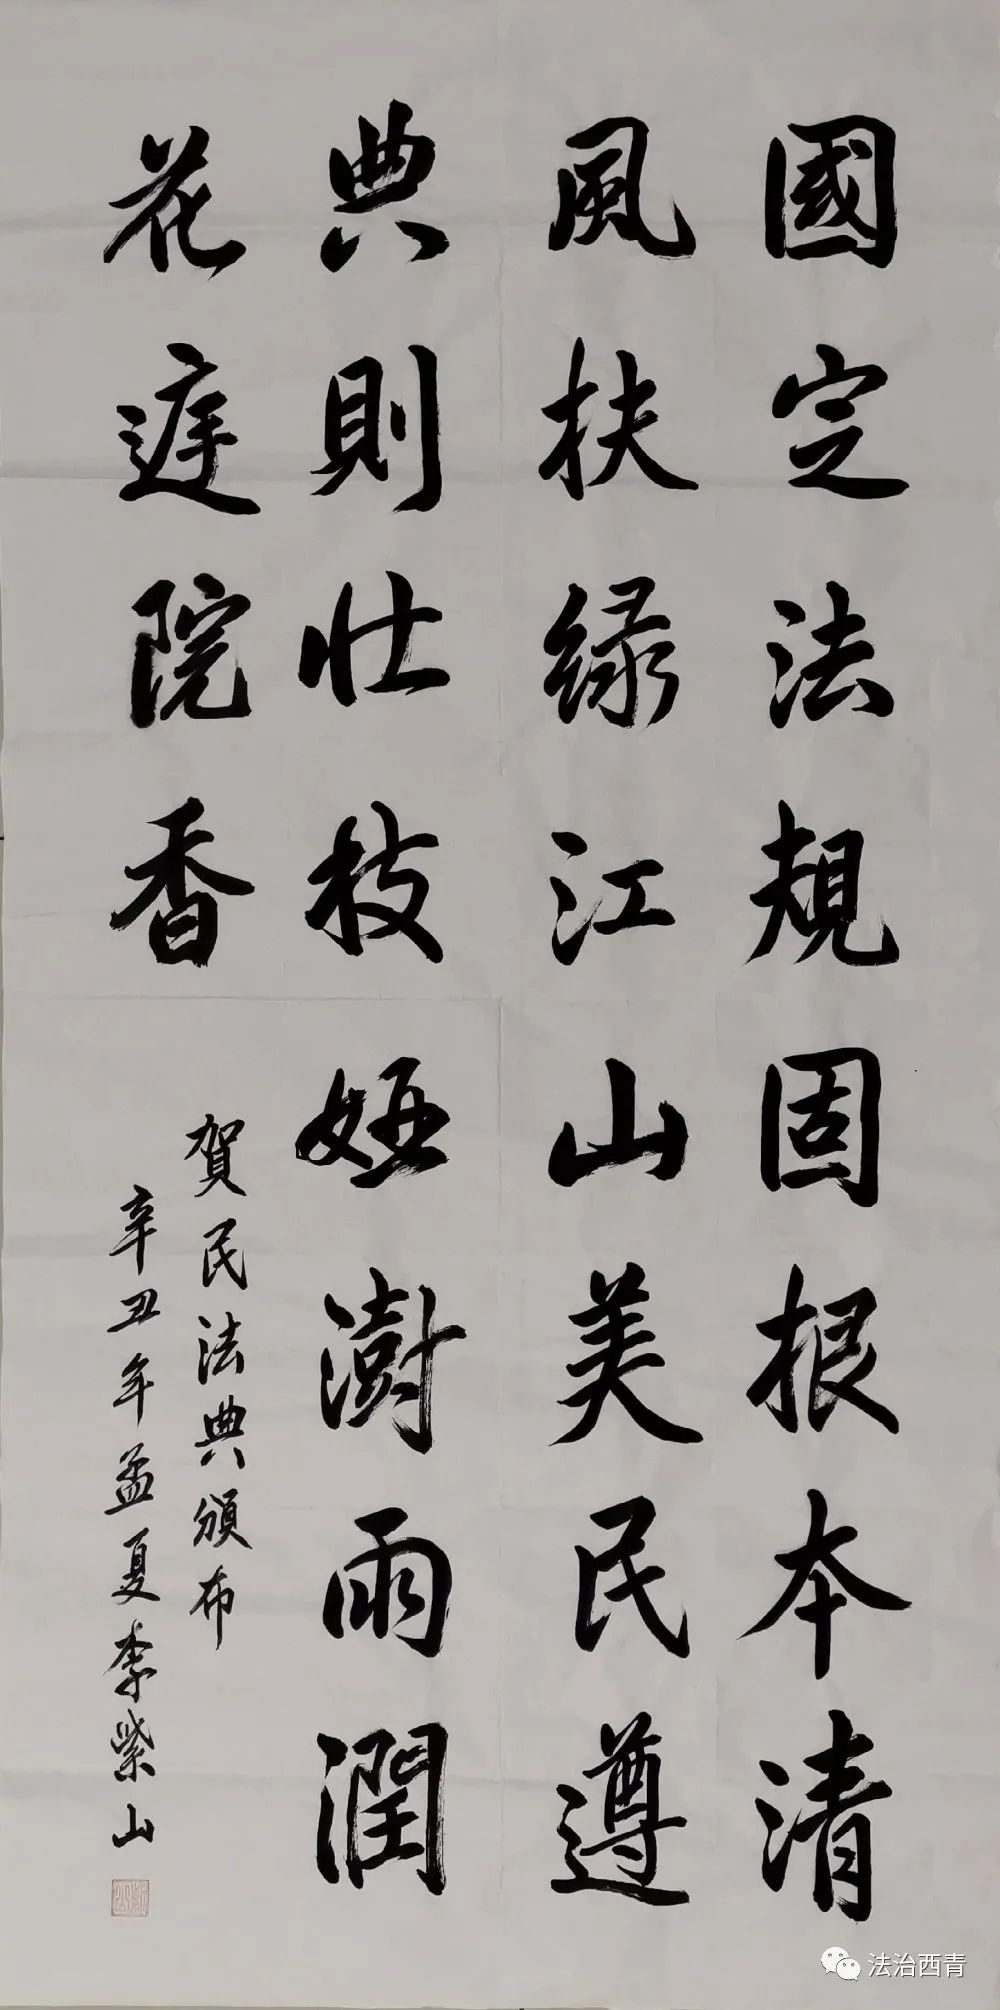 國定法規固根本清
風扶緑江山美民遵
典則壮枝娅澍雨潤
花庭院香
賀民法典頒布
辛丑年孟夏李紫山
法治西青